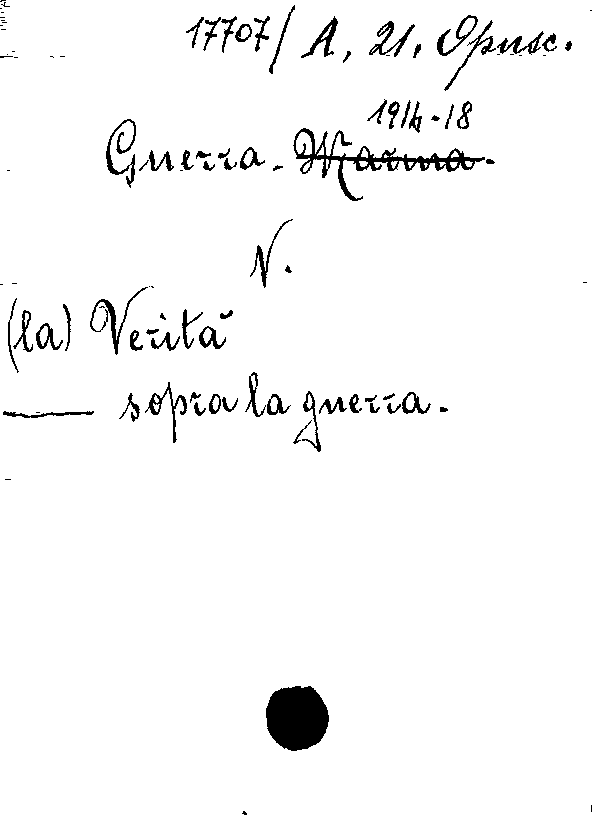 17707/ A, 21, Opusc.
1914-18
Guerra - Marina.
V.
(la) Verità
— sopra la guerra.